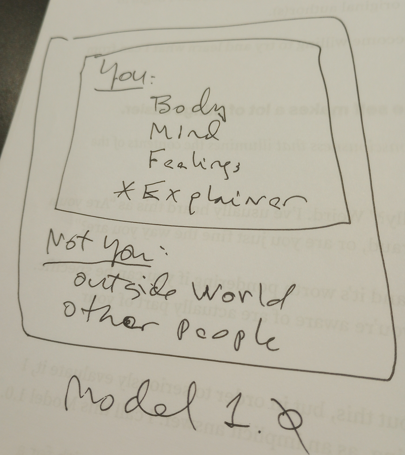 You:
Body
Mind
Feelings
*Explainer
Not You:
outside World
other people
Model 1.0